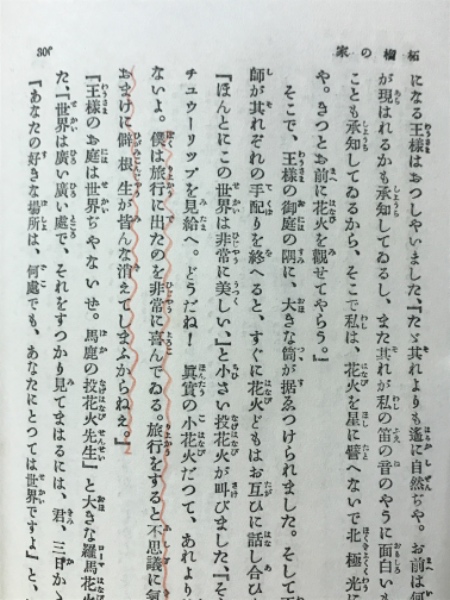 家の榴柘
になる王様はおつしやいました、『たゞ其れよりも遙に自然ぢや。お前は何
が現はれるかも承知してゐるし、また其れが私の笛の音のやうに面白い
ことも承知してゐるから、そこで私は、花火を星に譬へないで北極光に
や。きつとお前に花火を觀せてやらう。』
そこで、王様の御庭の隅に、大きな筒が据ゑつけられました。そして
師が其れぞれの手配りを終へると、すぐに花火どもはお互ひに話し合ひ
『ほんとにこの世界は非常に美しい、』と小さい投花火が叫びました、『そ
チユウーリツプを見給へ。どうだね！ 眞質の小花火だつて、あれより
ないよ。僕は旅行に出たのを非常に喜んでゐる。旅行をすると不思議に氣
おまけに僻根生が皆んな消えてしまふからねえ。』
『王様のお庭は世界ぢやないぜ。馬鹿の投花火先生』と大きな羅馬花火
た、『世界は廣い廣い處で、それをすつかり見てまはるには、君、三日か
『あなたの好きな場所は、何處でも、あなたにとつては世界ですよ』と、